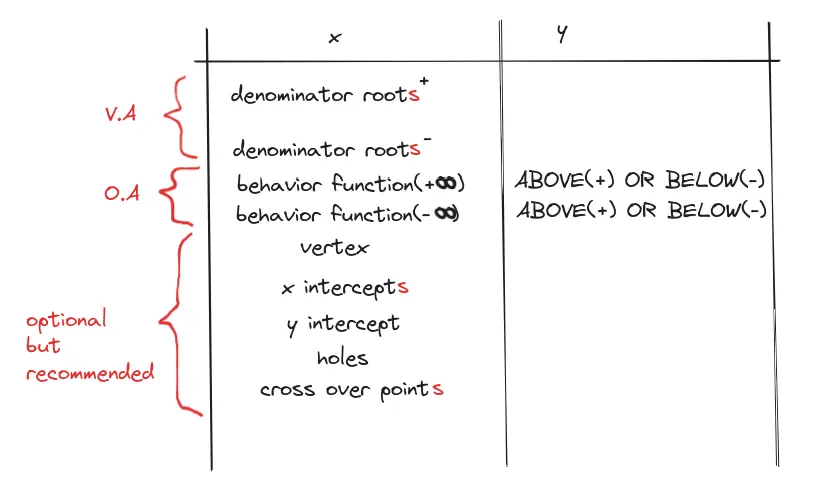 x y
V.A
denominator roots⁺
denominator roots⁻
O.A
behavior function(+∞) ABOVE(+) OR BELOW(-)
behavior function(-∞) ABOVE(+) OR BELOW(-)
vertex
x intercepts
y intercept
holes
cross over points
optional
but
recommended